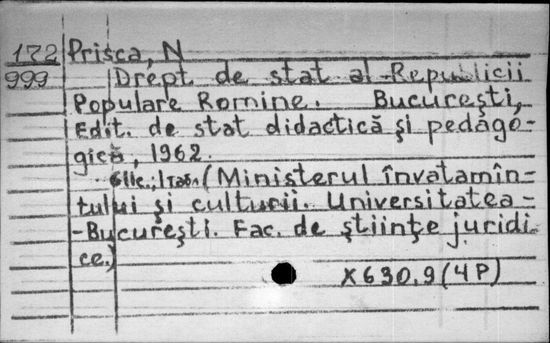 172 Prişca, N
999 Drept de stat al Republicii
Populare Romine. Bucureşti,
Edit. de stat didactică şi pedago-
gică, 1962.
611c., 1 табл. (Ministerul învatamîn-
tului şi culturii. Universitatea-
-Bucureşti. Fac. de ştiinţe juridi
ce.)
X630.9 (4P)